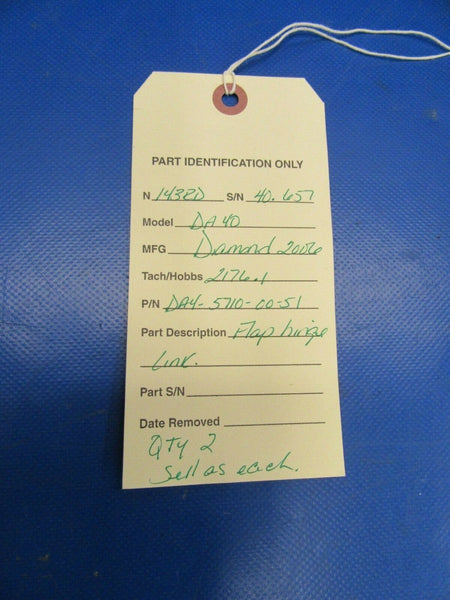 PART IDENTIFICATION ONLY
N 1432D S/N 40.657
Model DA40
MFG Diamond 2006
Tach/Hobbs 2176.1
P/N DA4-5710-00-51
Part Description Flap hinge
link.
Part S/N
Date Removed
QTY 2
Sell as each.